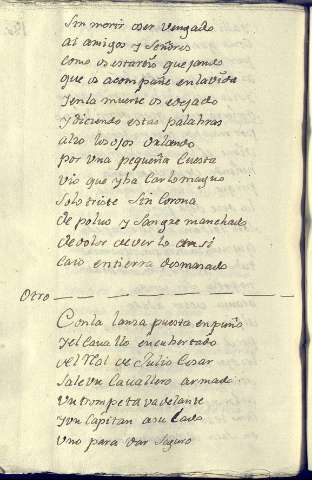 Sin morir o ser vengado
al amigos y Señores
como os estareis quejando
que os acompañe en la vida
y en la muerte os e dejado
y diciendo estas palabras
alzo los ojos valando
por una pequeña Cuesta
vio que yba Carlo magno
Solo triste Sin Corona
de poluo y Sangre manchado
de dolor de verlo ansi
Caio en tierra desmaiado
Otro
Con la lanza puesta en puño
y el Cauallo encubertado
del Real de Julio Cesar
Sale un Cauallero armado
un trompeta va delante
y un Capitan a su Lado
uno para dar Seguro